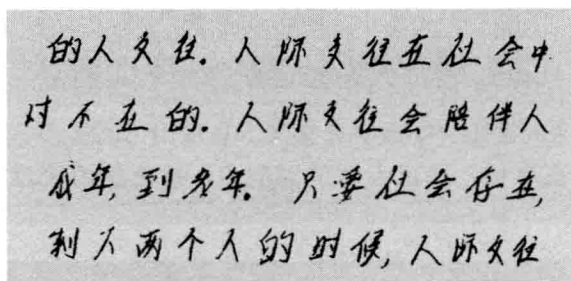 的人交往。人际交往在社会中
时不在的。人际交往会陪伴人
成年,到老年。只要社会存在,
剩下两个人的时候,人际交往